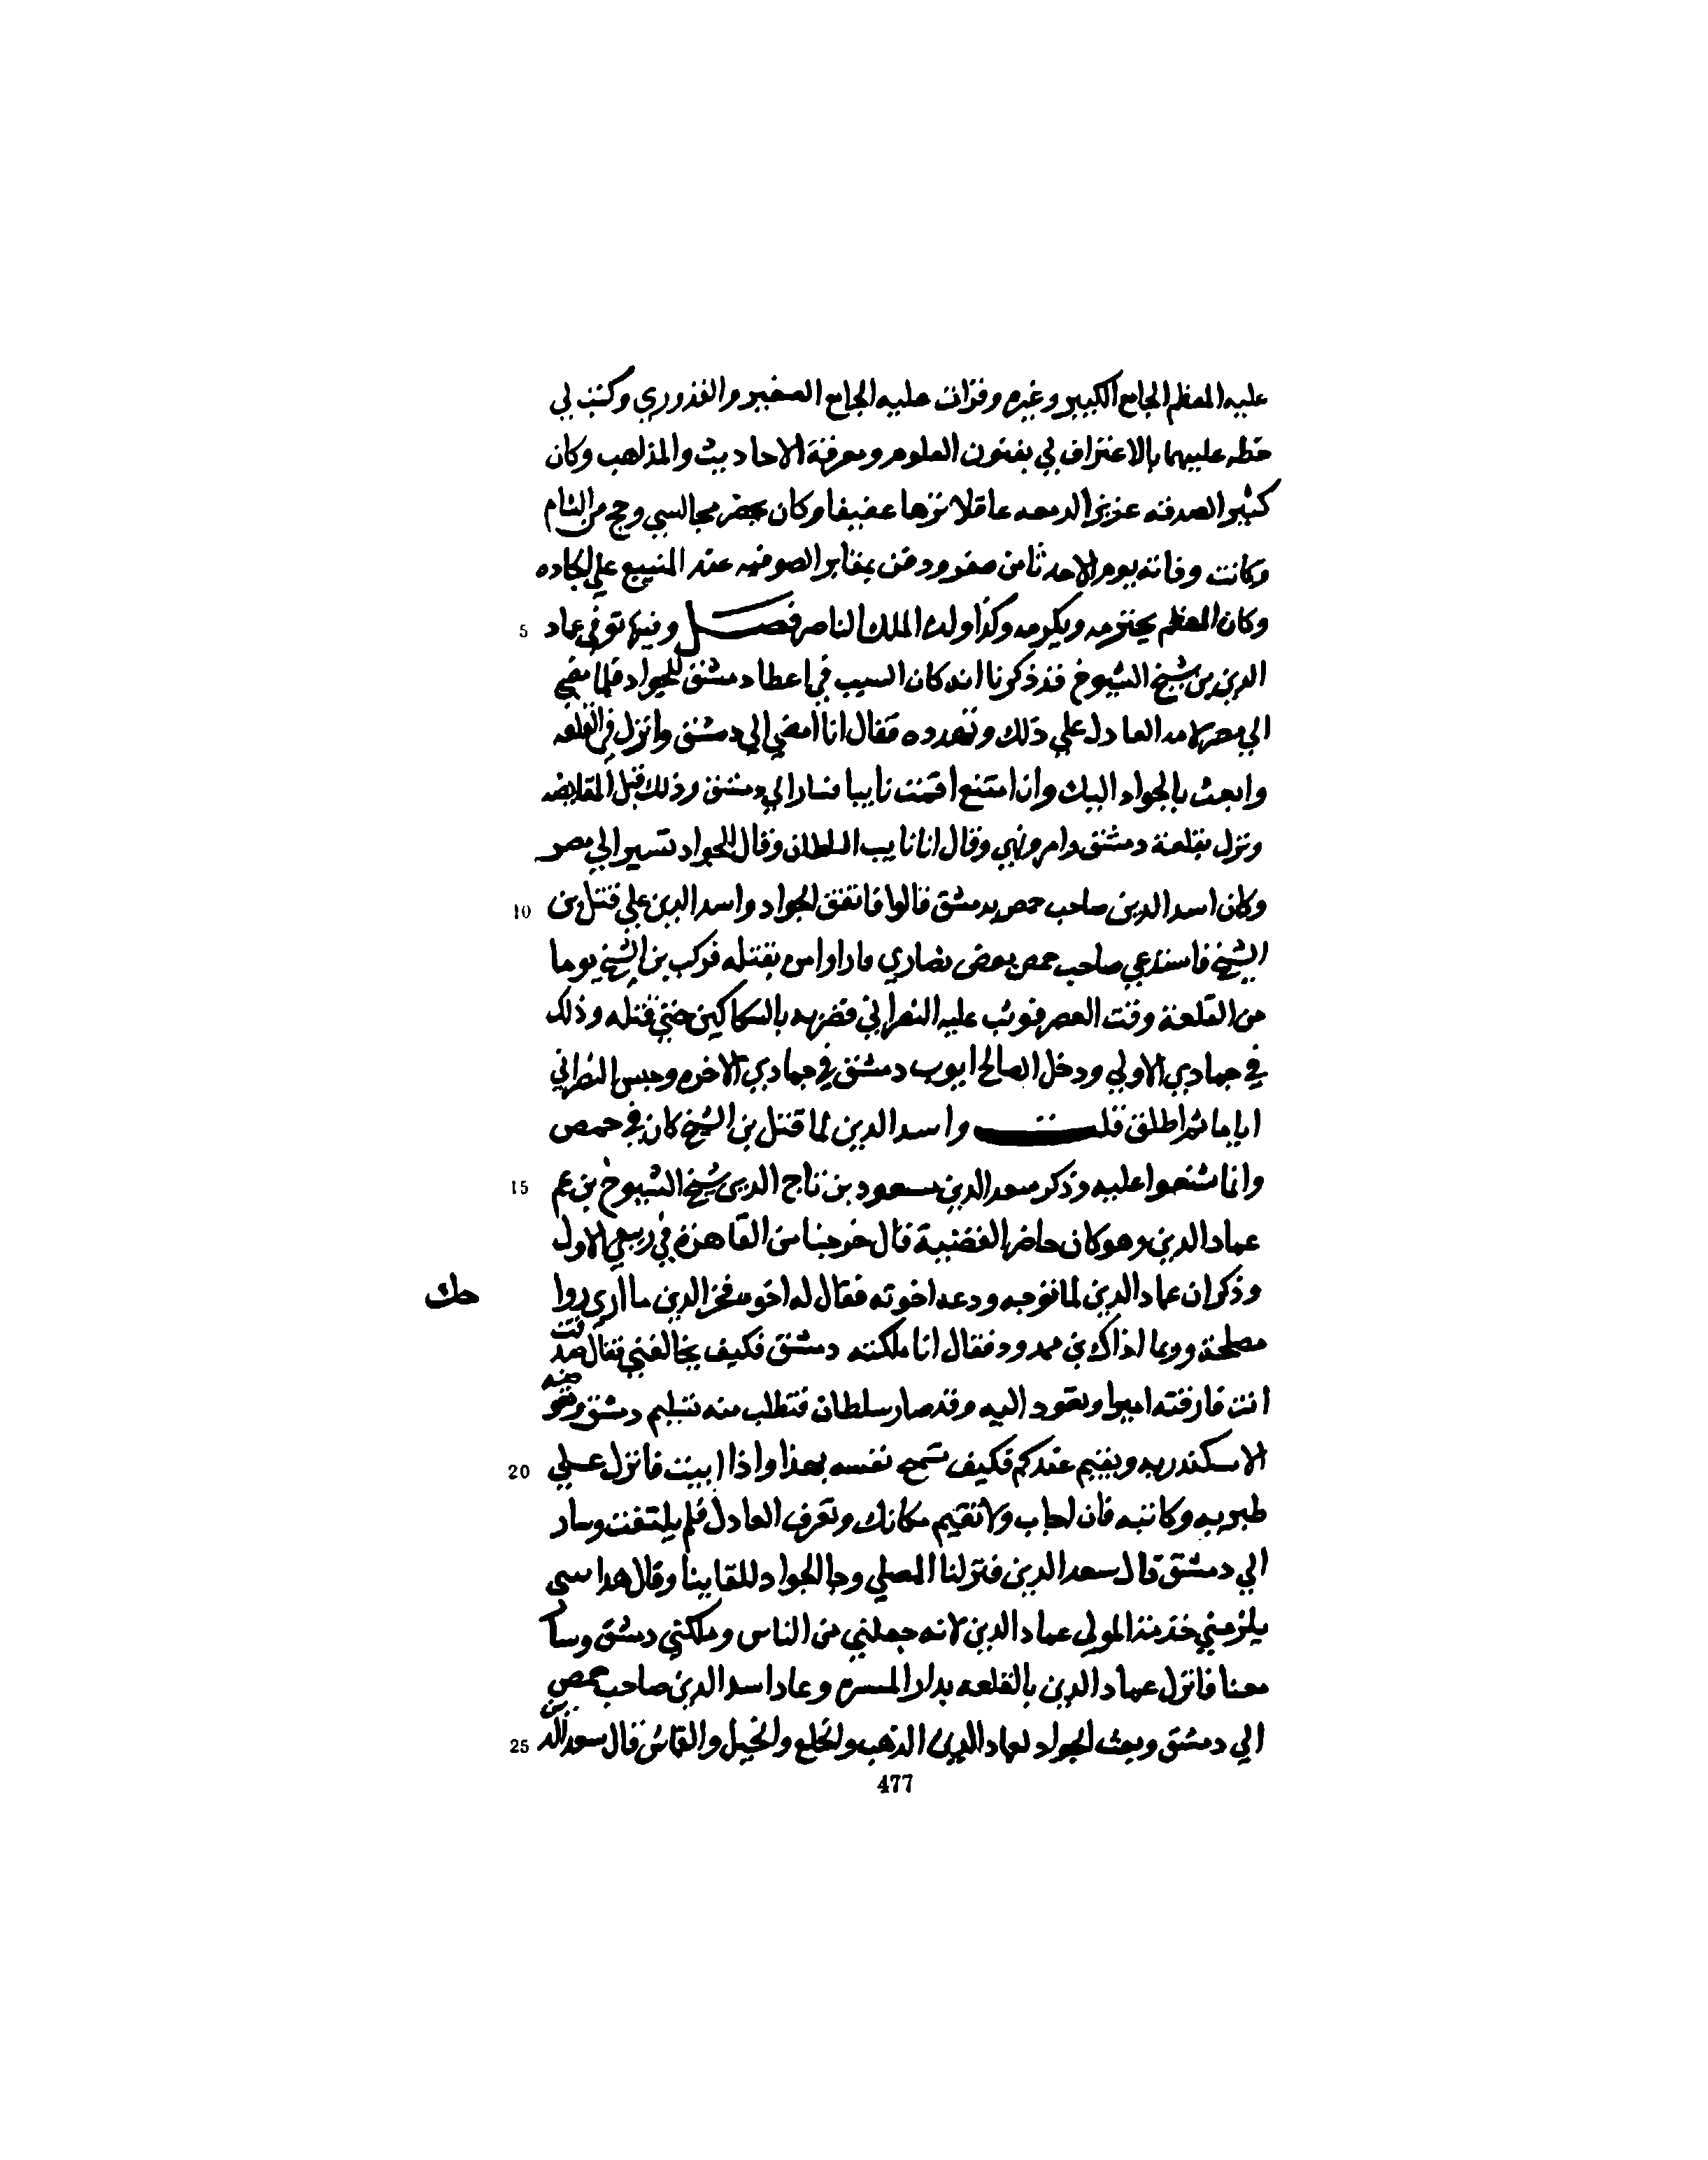 عليه المعظم الجامع الكبير وغيره وقرات عليه الجامع الصغير والقدوري وكتب لي
خطه عليهما بالاعتراف لي بفنون العلوم ومعرفة الاحاديث والمذاهب وكان
كثير الصدقه عزيز الدمعه عاقلا نزها عفيفا وكان يحضر مجالسي وحج من الشام
وكانت وفاته يوم الاحد ثامن صفر ودفن بمقابر الصوفيه عند المنيبع علي الجاده
وكان المعظم يحترمه ويكرمه وكذا ولده الملك الناصر فصل وفيها توفي عماد 5
الدين بن شيخ الشيوخ قد ذكرنا انه كان السبب في اعطا دمشق للجواد فلما مضي
الي مصر لامه العادل علي ذلك وتهدده فقال انا امضي الي دمشق وانزل في القلعه
وابعث بالجواد اليك وان امتنع اقمت نايبا فسار الي دمشق وذلك قبل المقايضه
ونزل بقلعة دمشق وامر ونهي وقال انا نايب السلطان وقال للجواد تسير الي مصر
وكان اسد الدين صاحب حمص بدمشق قالوا فاتفق الجواد واسد الدين علي قتل بن 10
الشيخ فاستدعي صاحب حمص بعض نصاري قارا وامره بقتله فركب بن الشيخ يوما
من القلعة وقت العصر فوثب عليه النصراني فضربه بالسكاكين حتي قتله وذلك
في جمادي الاولي ودخل الصالح ايوب دمشق في جمادي الاخره وحبس النصراني
اياما ثم اطلق قلت واسد الدين لما قتل بن الشيخ كان في حمص
وانما شنعوا عليه وذكر سعد الدين مسعود بن تاج الدين شيخ الشيوخ بن عم 15
عماد الدين وهو كان حاضر القضية قال خرجنا من القاهرة في ربيع الاول
وذكر ان عماد الدين لما توجه ودعه اخوته فقال له اخوه فخر الدين ما اري رواحك
مصلحة وربما اذاك بن ممدود فقال انا ملكته دمشق فكيف يخالفني فقال صدقت
انت فارقته اميرا وتعود اليه وقد صار سلطان فتطلب منه تسليم دمشق وتعوضه
الاسكندريه ويقيم عندكم فكيف تسمح نفسه بهذا واذا ابيت فانزل علي 20
طبريه وكاتبه فان اجاب والا تقيم مكانك وتعرف العادل فلم يلتفت وسار
الي دمشق قال سعد الدين فنزلنا المصلي وجا الجواد للقاينا وقال هذا شي
يلزمني خدمة المولي عماد الدين لانه جعلني من الناس وملكني دمشق وسار
معنا فانزل عماد الدين بالقلعه بدار المسره وعاد اسد الدين صاحب حمص
الي دمشق وبعث الجواد لعماد الدين الذهب والخلع والخيل والقماش قال سعد الدين 25
477